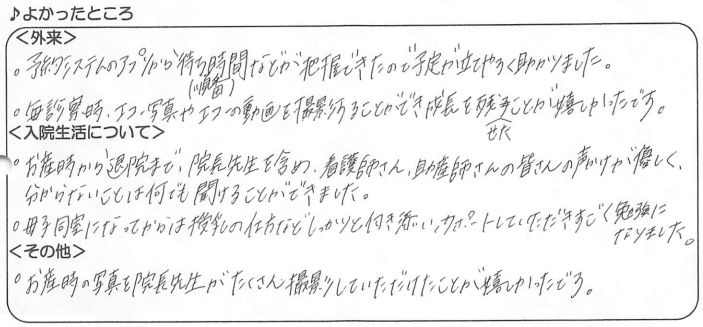 ♪よかったところ
＜外来＞
○予約システムのアプリから待ち時間などが把握できたので予定が立てやすく助かりました。
(順番)
○毎診察時、エコー写真やエコーの動画を撮影することができ成長を残すことが嬉しかったです。
せた
＜入院生活について＞
○お産時から退院まで、院長先生を含め、看護師さん、助産師さんの皆さんの声かけが優しく、
分からないことは何でも聞けることができました。
○母子同室になってからは授乳の仕方などしっかりと付き添い、サポートしていただきすごく勉強に
なりました。
＜その他＞
○お産時の写真を院長先生がたくさん撮影していただけたことが嬉しかったです。